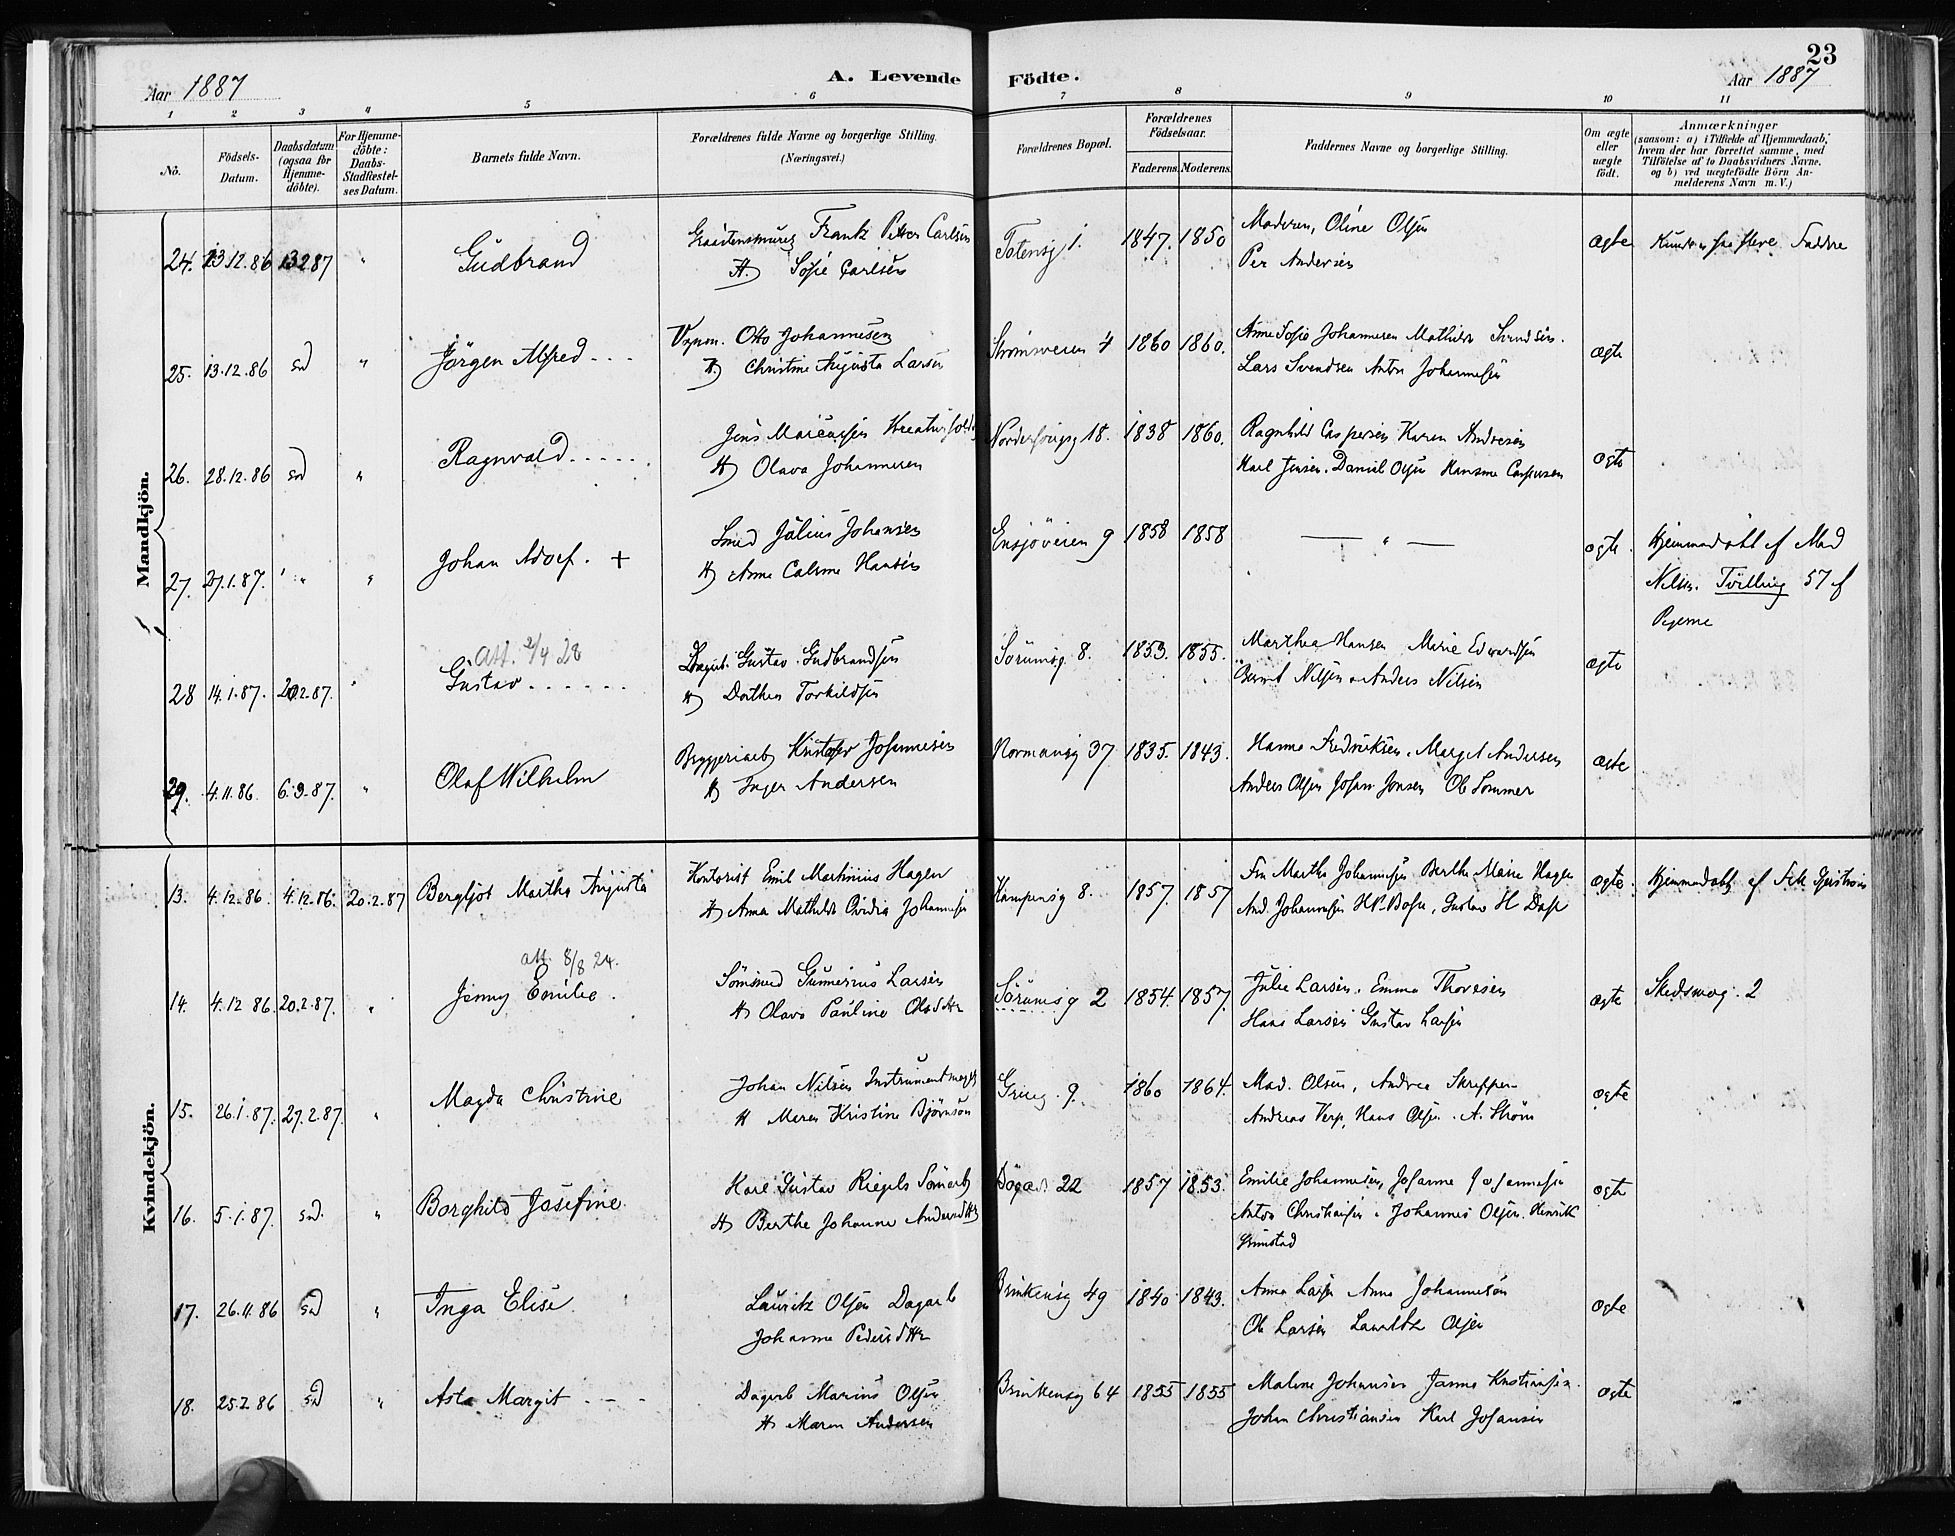 23
Aar 1887
A. Levende Födte.
Aar 1887
1 2 3 4 5 6 7 8 9 10 11
No.
Födsels-Datum.
Daabsdatum (ogsaa for Hjemme-döbte).
For Hjemme-döbte: Daabs-Stadfæstel-ses Datum.
Barnets fulde Navn.
Forældrenes fulde Navne og borgerlige Stilling. (Næringsvei.)
Forældrenes Bopæl.
Forældrenes Födselsaar.
Faderens. Moderens.
Faddernes Navne og borgerlige Stilling.
Om ægte eller uægte födt.
Anmærkninger
(saasom: a) i Tilfælde af Hjemmedaab, hvem der har forrettet samme, med Tilföielse af to Daabsvidners Navne. og b) ved uægtefödte Börn An-melderens Navn m. V.)
Mandkjön.
24. 13.12.86 13.2.87 " Gudbrand Frantz Petter Carlsen Totensg 1. 1847. 1850 Moderen, Oline Olsen ægte
H) Sofie Carlsen Per Andersen
25. 13.12.86 sd " Jörgen Alfred Otto Johannesen Strömsveien 4 1860 1860. Anne Sofie Johannesen Mathilde Svendsen. ægte
H) Christine Augusta Larsen Lars Svendsen Anton Johannesen
26. 28.12.86 sd " Ragnvald Jens Marcussen Norderhovgsg 18. 1838 1860. Ragnhild Caspersen Karen Andresen ægte
H) Olava Johannesen Karl Jensen. Daniel Olsen Hansine Caspersen
27. 27.1.87. " " Johan Adolf. + Smed Julius Johansen Ensjöveien 9 1858 1858 — " — ægte. Hjemmedöbt af Mad
H) Anne Caline Hansen Nilsen. Tvilling 57 af
Pigerne
att. 2/4 28
28 14.1.87. 20.2.87. " Gustav Gustav Gudbrandsen Sörumsg. 8. 1853. 1855. Marthea Hansen Marie Edvardsen ægte
H) Dorthea Torkildsen Bernt Nilsen Anders Nilsen
29. 4.11.86. 6.3.87. " Olaf Wilhelm Bryggeriarb Kristofer Johannesen Normansg 37 1835. 1843. Hanna Fredriksen. Marget Andersen ægte
H) Inger Andersen Anders Olsen Johan Jonsen Ole Sommer
Kvindekjön.
13. 4.12.86. 4.12.86. 20.2.87 Bergljot Martha Augusta Kontorist Emil Martinius Hagen Kampensg 8. 1857. 1857 Martha Johannesen Berthe Marie Hagen ægte. Hjemmedöbt af
H Anna Mathilde Johannesen And. Johannesen Gustav H
att. 8/8 24.
14. 4.12 86. 20.2.87. " Jenny Emilie. Gunerius Larsen Sörumsg 2 1854. 1857. Julie Larsen. Emma Thoresen ægte Skedsmog. 2
H Olava Pauline Olsdttr Hans Larsen Gustav Larsen
15. 26.1.87. 27.2.87. " Magda Christine Johan Nilsen Instrumentmager Grueg. 9. 1860 1864. Mad. Olsen, Andrea ægte
H Maren Kristine Björnson Andreas Hans Olsen. A. Ström
16. 5.1.87. sd. " Borghild Josefine. Karl Gustav 22 1857 1853. Emilie Johannesen, Johanne Johannesen ægte
H Berthe Johanne Andersdttr Anton Christiansen. Johannes Olsen. Henrik
Grimstad
17. 26.11.86 sd " Inga Elise. Lauritz Olsen Dagarb Brinkensg 49 1840 1843. Anna Larsen Anne Johannesen ægte
Johanne Pedersdttr Ole Larsen Lauritz Olsen
18. 25.2.86 sd " Asta Margit Dagarb Marius Olsen Brinkensg 64 1855 1855 Maline Johansen Janna Kristiansen. ægte
H Maren Andersen Johan Christiansen Karl Johansen